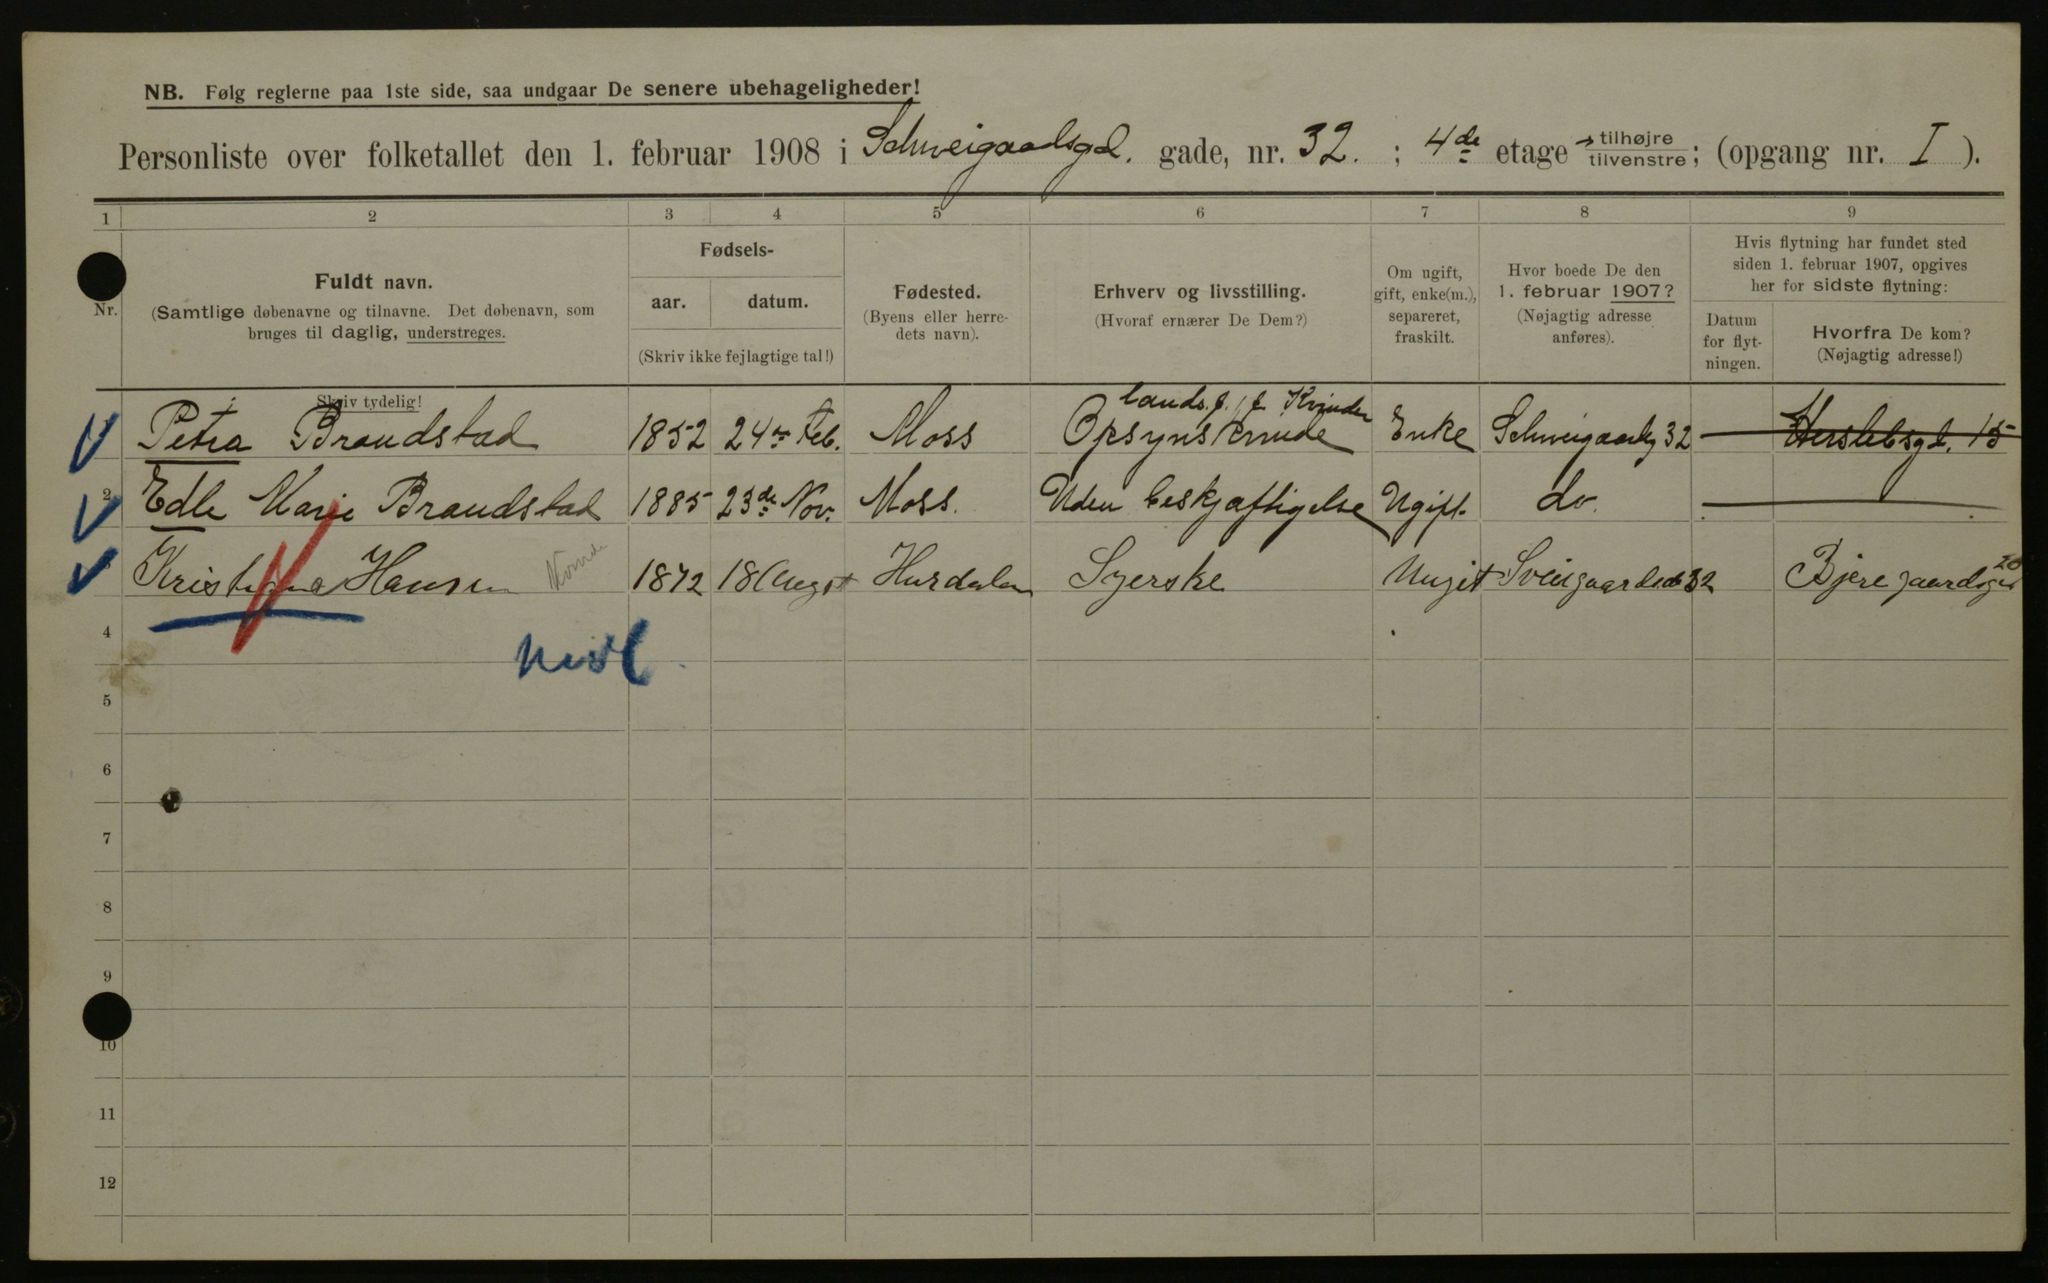 NB. Følg reglerne paa 1ste side, saa undgaar De senere ubehageligheder!
Personliste over folketallet den 1. februar 1908 i Schweigaadsgd. gade, nr. 32. ; 4de etage tilhøjre/tilvenstre; (opgang nr. I ).
1 2 3 4 5 6 7 8 9
Nr.
Fuldt navn.
(Samtlige døbenavne og tilnavne. Det døbenavn, som
bruges til daglig, understreges.
Skriv tydelig!
Fødsels-
aar. datum.
(Skriv ikke fejlagtige tal!)
Fødested.
(Byens eller herre-
dets navn).
Erhverv og livsstilling.
(Hvoraf ernærer De Dem?)
Om ugift,
gift, enke(m.),
separeret,
fraskilt.
Hvor boede De den
1. februar 1907?
(Nøjagtig adresse
anføres).
Hvis flytning har fundet sted
siden 1. februar 1907, opgives
her for sidste flytning:
Datum
for flyt-
ningen.
Hvorfra De kom?
(Nøjagtig adresse!)
Petra Brandstad 1852 24de Feb. Moss Opsynskvinde lands. f. Kvinder Enke Schweigaardsg 32 Herslebsgd. 15
2 Edle Marie Brandstad 1885 23de Nov. Moss. Uden beskjæftigelse Ugift. do.
Kristiana Hansen 1872 18 August Hurdalen Syerske Ungit Sveigaardsd 32 Bjeregaardsgd 20
4
5
6
7
8
9
10
11
12